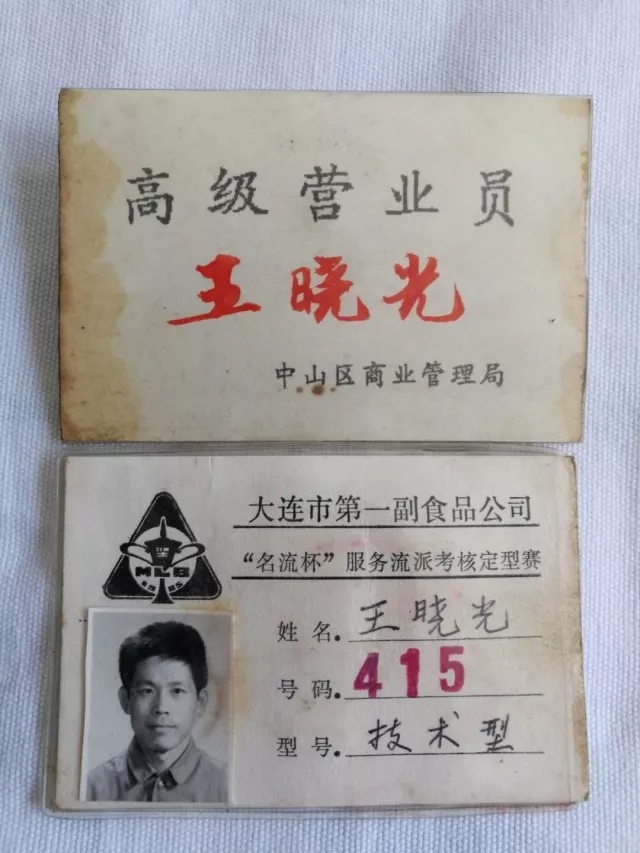 高级营业员
王晓光
中山区商业管理局
大连市第一副食品公司
“名流杯”服务流派考核定型赛
MLB
1985
姓名.王晓光
号码.415
型号.技术型